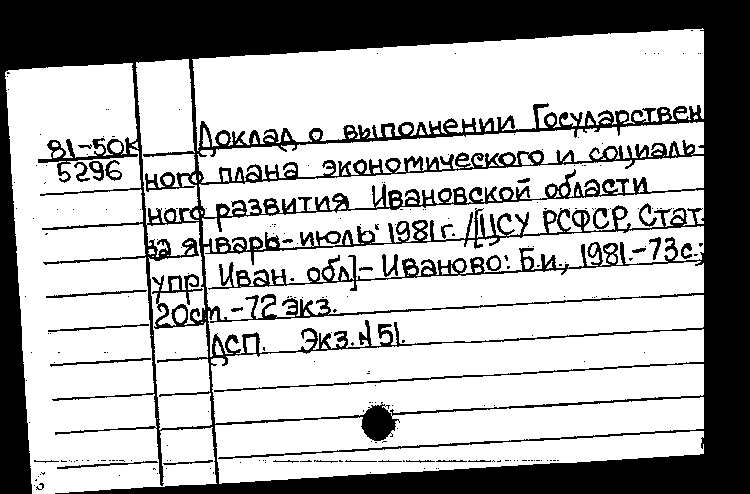 81-50К
5296
Доклад о выполнении Государствен
ного плана экономического и социаль-
ного развития Ивановской области
за январь-июль 1981 г. /[ЦСУ РСФСР, Стат.
упр. Иван. обл]- Иваново: Б.и., 1981.-73с.;
20ст.-72 экз.
ДСП. Экз.N 51.